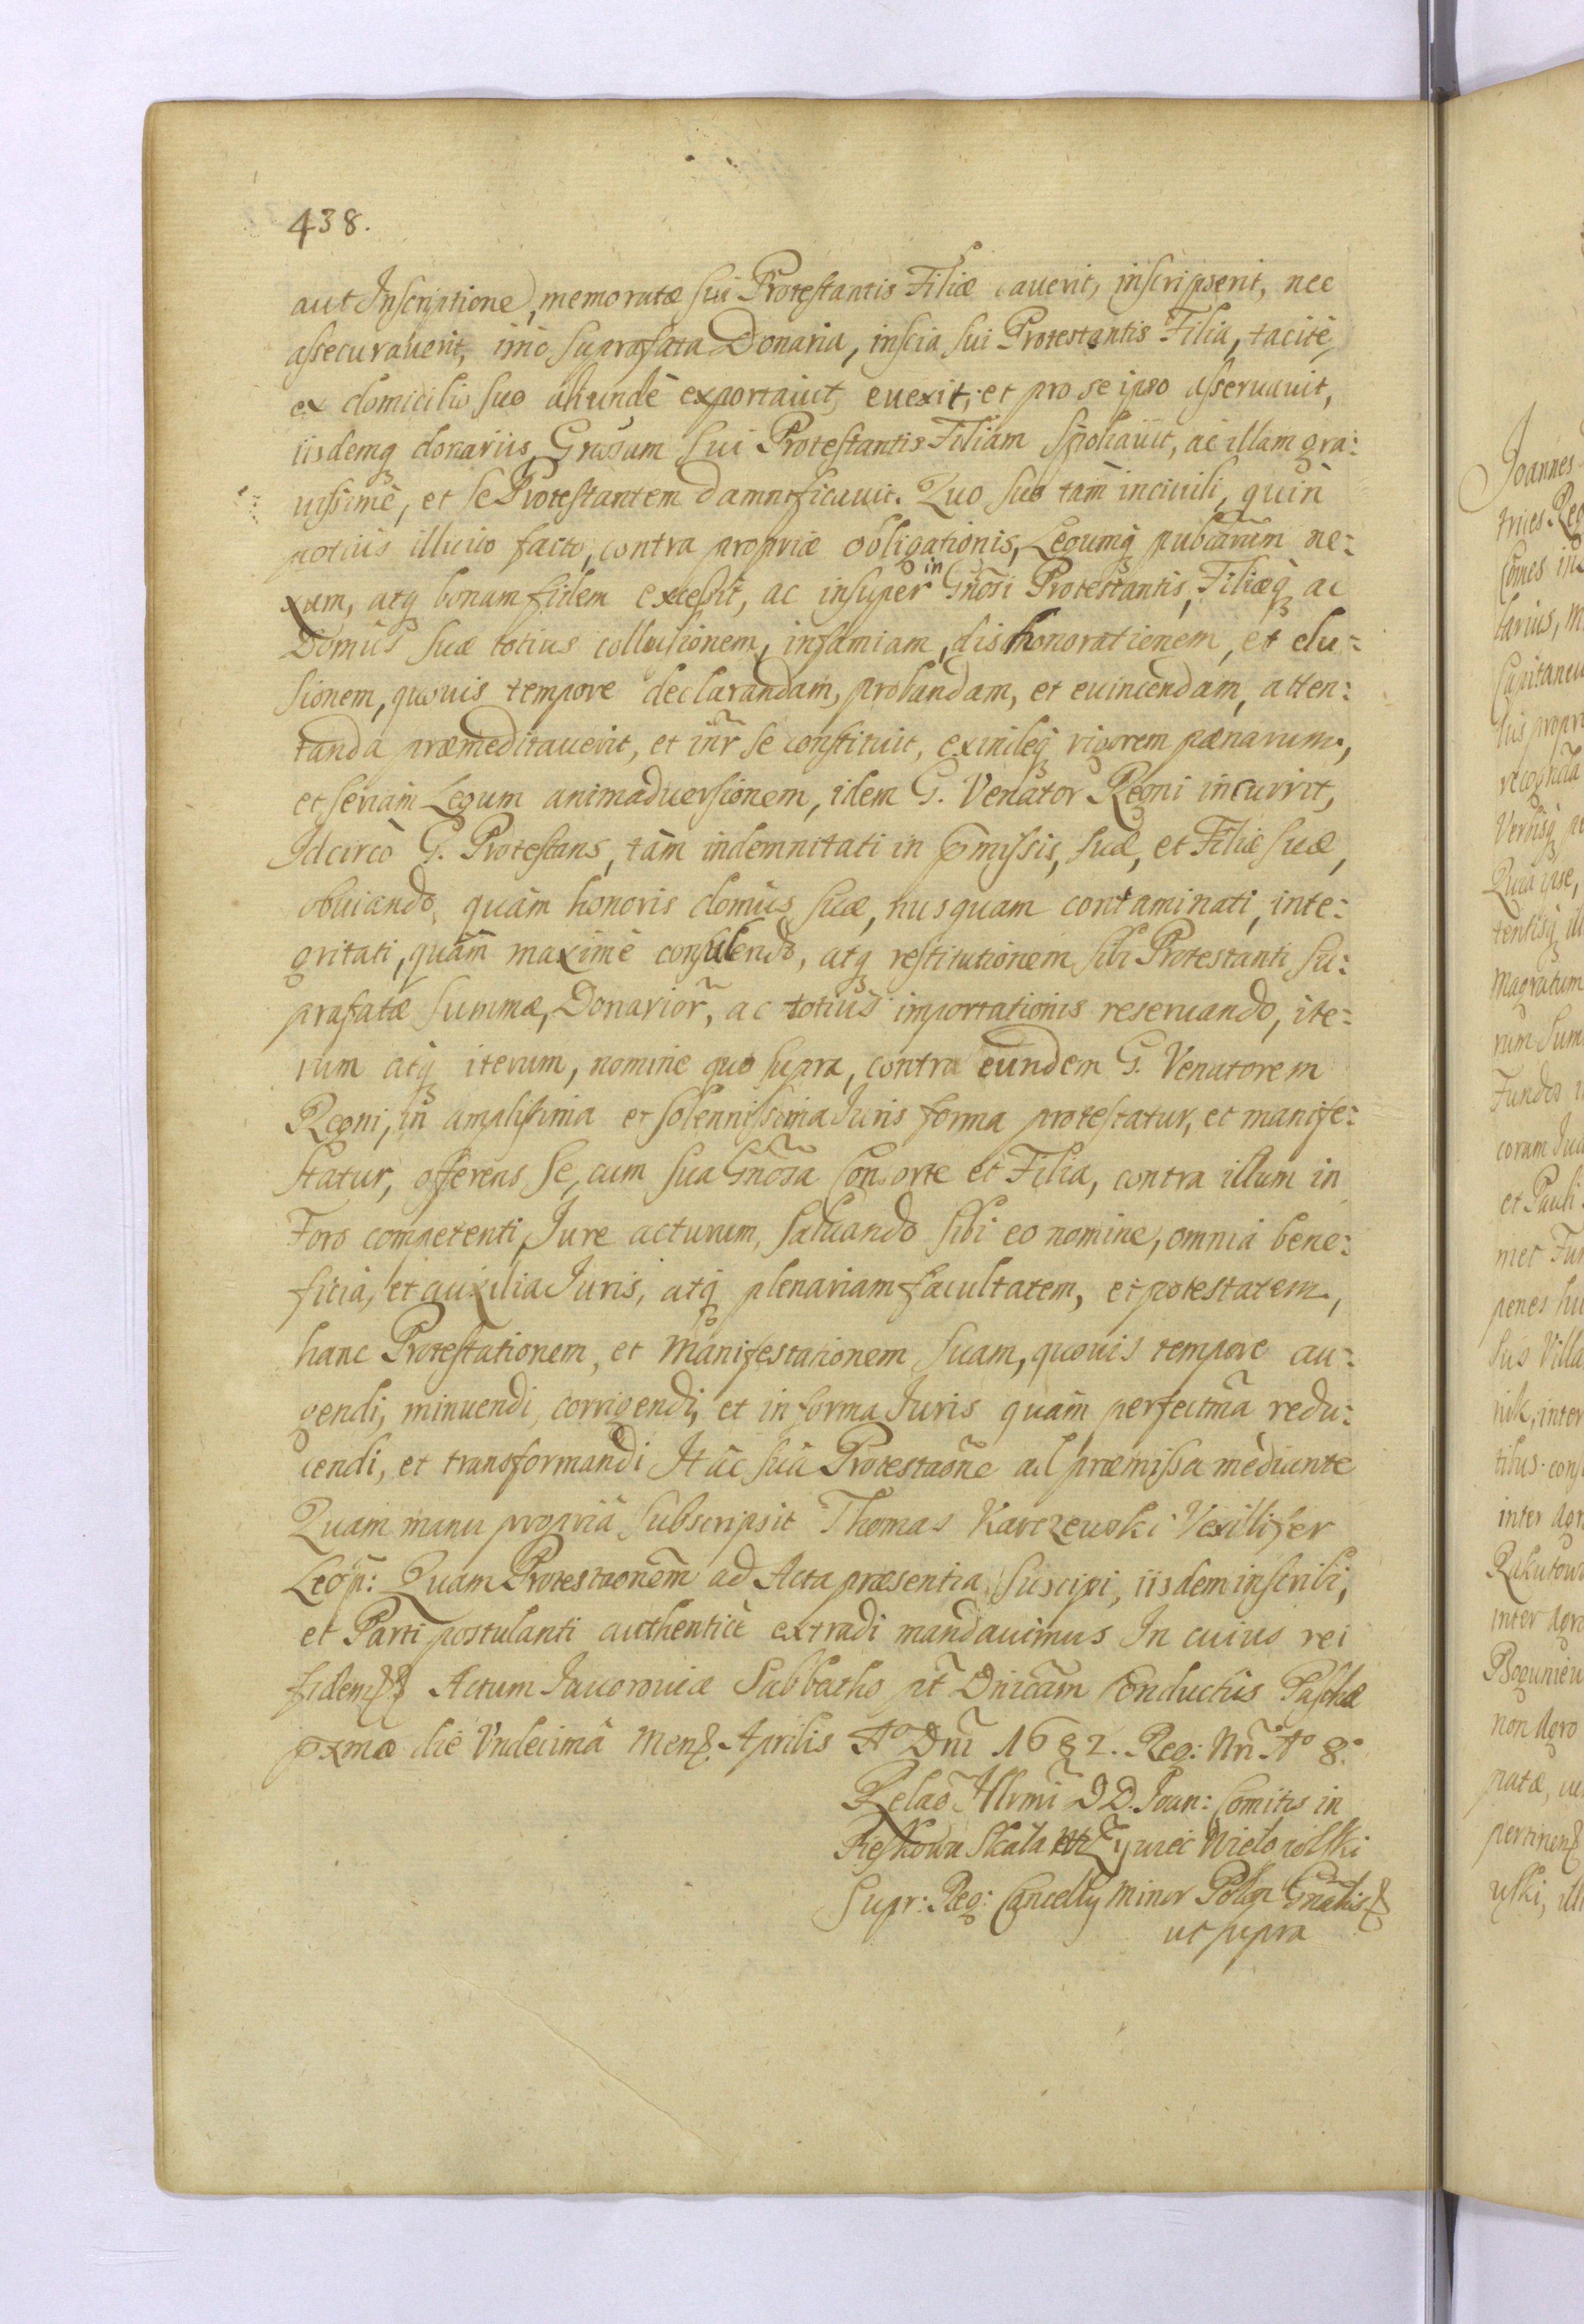 438.
aut Inscriptione, memoratæ sui Protestantis Filiæ cauerit, inscripserit, nec
assecurauerit, imò suprafata Donaria, inscia sui Protestantis Filia, tacitè,
ex domicilio suo aliundè exportauit, euexit, et pro se ipso asseruauit,
iisdemq donariis, Gnosum sui Protestantis Filiam spoliauit, ac illam gra:
uissimè, et se Protestantem damnificauit. Quo suo tam inciuili, quin
potius illicito facto, contra propriæ obligationis, Legumq publicarum ne:
xum, atq bonam fidem excessit, ac insuper in Gnosi Protestantis, Filiæq ac
Domus suæ totius collusionem, infamiam, dishonorationem, et elu:
sionem, quouis tempore declarandam, probandam, et euincendam, atten:
tanda præmeditauerit, et inr se constituit, exindeq rigorem pœnarum,
et seriam Legum animaduersionem, idem G. Venator Regni incurrit,
Idcircò G. Protestans, tàm indemnitati in pmissis, suæ, et Filiæ suæ,
obuiando, quàm honoris domus suæ, nusquam contaminati, inte:
gritati, quàm maximè consulendo, atq restitutionem sibi Protestanti su:
prafatæ summæ, Donarior, ac totius importationis reseruando, ite:
rum atq iterum, nomine quo supra, contra eundem G. Venatorem
Regni, in amplissima et solennissima Iuris forma protestatur, et manife:
statur, offerens se, cum sua Gnosa Consorte et Filia, contra illum in
Foro competenti, Iure acturum, saluando sibi eo nomine, omnia bene:
ficia, et auxilia Iuris, atq plenariam facultatem, et potestatem,
hanc Protestationem, et Manifestationem suam, quouis tempore au:
gendi, minuendi, corrigendi, et in forma Iuris quàm perfectma redu:
cendi, et transformandi Hac suâ Protestaone ad præmissa mediante
Quam manu propriâ subscripsit Thomas Karczewski Vexillifer
Leop: Quam Protestaonem ad Acta præsentia suscipi, iisdem inscribi,
et Parti postulanti authenticè extradi mandauimus In cuius rei
fidem Actum Iauorouiæ Sabbatho pt Dnicam Conductus Paschæ
pxmo die Vndecimâ Mens Aprilis Ao Dni 1682. Reg: Nri Ao 8.
Relaõ Illrmi D D. Ioan: Comitis in
Pieskowa Skała et Zywiec Wielopolski
Supr: Reg: Cancelly Minor Polon Gnalis
ut supra